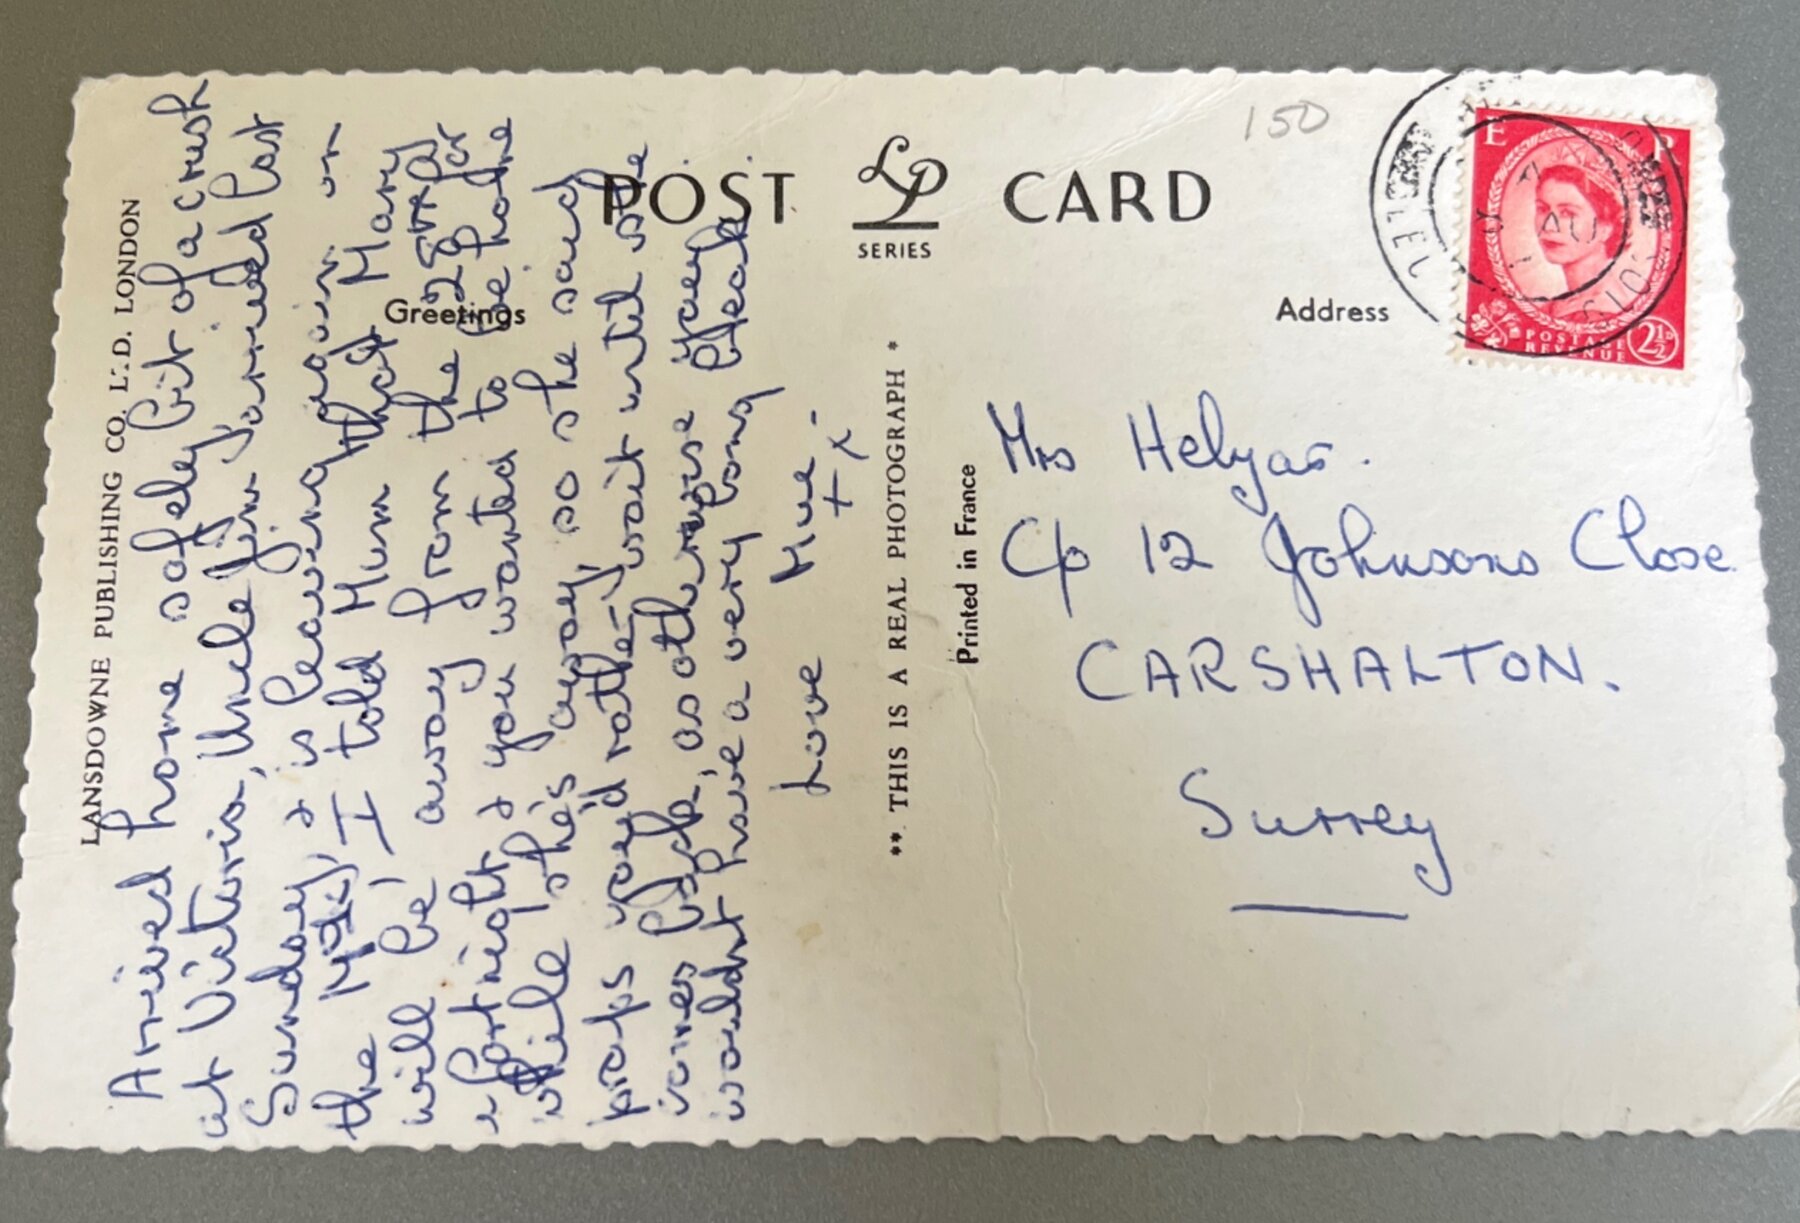 POST CARD
LP
SERIES
Greetings
Address
150
LANSDOWNE PUBLISHING CO. LTD. LONDON
** THIS IS A REAL PHOTOGRAPH *
Printed in France
E R
POSTAGE
REVENUE
2½D
Arrived home safely bit of a crush
at Victoria, Uncle Jim arrived last
Sunday & is leaving again on
the I told Mum that Mary
will be away from the 28th for
a fortnight & you wanted to be home
while she's away, so she said
praps you'd rather wait until she
comes back, as otherwise you
wouldnt have a very long break.
Love
Mrs Helyar.
C/o 12 Johnsons Close
CARSHALTON.
Surrey